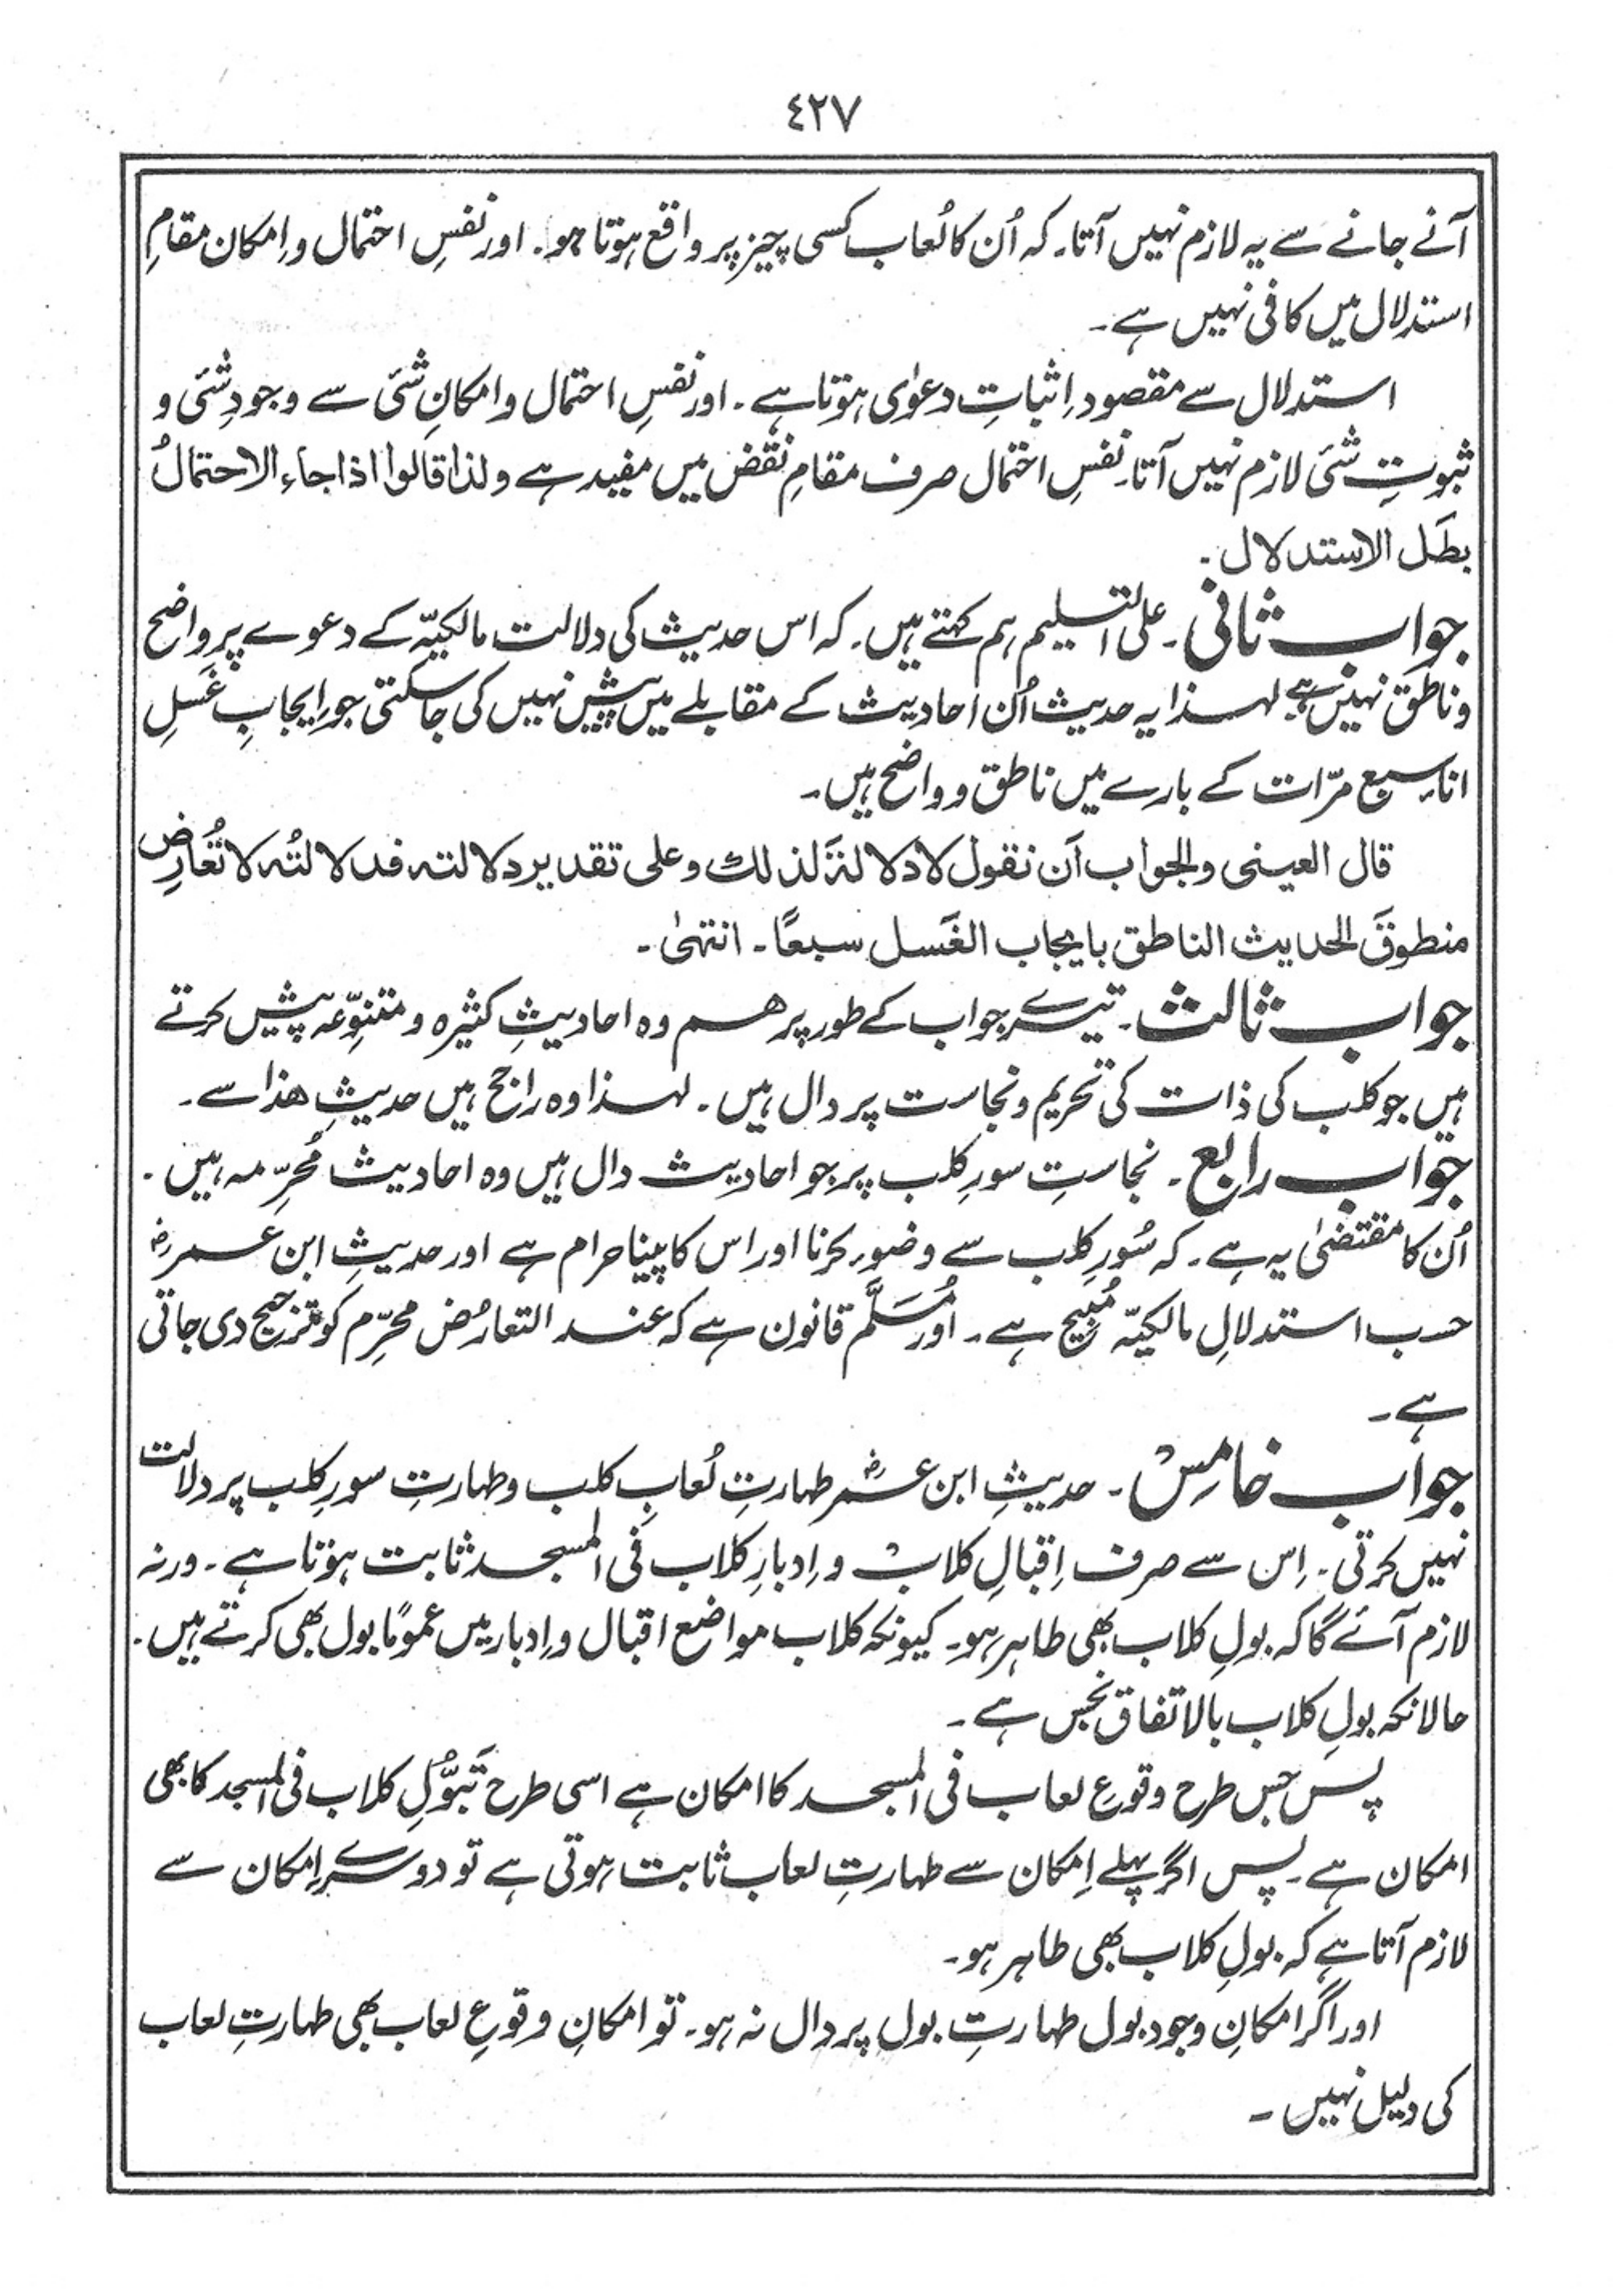 ٤٢٧
آنے جانے سے یہ لازم نہیں آتا۔ کہ اُن کا لُعاب کسی چیز پر واقع ہوتا ہو۔ اور نفسِ احتمال و اِمکان مقامِ
استدلال میں کافی نہیں ہے۔
استدلال سے مقصود اِثباتِ دعوٰی ہوتا ہے۔ اور نفسِ احتمال و امکانِ شئی سے وجودِ شئی و
ثبوتِ شئی لازم نہیں آتا۔ نفسِ احتمال صرف مقامِ نقض میں مفید ہے ولذا قالوا اذا جاء الاحتمالُ
بطَل الاستدلال۔
جواب ثانی۔ علی التسلیم ہم کہتے ہیں۔ کہ اس حدیث کی دلالت مالکیّہ کے دعوے پر واضح
و ناطق نہیں ہے لہٰذا یہ حدیث اُن احادیث کے مقابلے میں پیش نہیں کی جاسکتی جو اِیجابِ غَسلِ
اناء سبع مرّات کے بارے میں ناطق و واضح ہیں۔
قال العینی والجواب اَن نقول لا دلالةَ لذلك وعلی تقدیر دلالته فدلالتُه لا تُعارِض
منطوقَ الحدیث الناطق بایجاب الغَسل سبعًا۔ انتهیٰ۔
جواب ثالث۔ تیسرے جواب کے طور پر ھم وہ احادیثِ کثیرہ و متنوّعہ پیش کرتے
ہیں جو کلب کی ذات کی تحریم و نجاست پر دال ہیں۔ لہٰذا وہ راجح ہیں حدیثِ ھذا سے۔
جواب رابع۔ نجاستِ سورِ کلب پر جو احادیث دال ہیں وہ احادیث مُحرِّمہ ہیں۔
اُن کا مقتضیٰ یہ ہے۔ کہ سُورِ کلاب سے وضوء کرنا اور اس کا پینا حرام ہے اور حدیثِ ابن عمرؓ
حسب استدلالِ مالکیّہ مُبِیح ہے۔ اور مُسَلَّم قانون ہے کہ عند التعارُض محرِّم کو ترجیح دی جاتی
ہے۔
جواب خامس۔ حدیثِ ابن عمرؓ طہارتِ لُعابِ کلب و طہارتِ سورِ کلب پر دلالت
نہیں کرتی۔ اِس سے صرف اِقبالِ کلاب و اِدبارِ کلاب فی المسجد ثابت ہوتا ہے۔ ورنہ
لازم آئے گا کہ بولِ کلاب بھی طاہر ہو۔ کیونکہ کلاب مواضع اقبال و اِدبار میں عمومًا بول بھی کرتے ہیں۔
حالانکہ بولِ کلاب بالاتفاق نجس ہے۔
پس جس طرح وقوعِ لعاب فی المسجد کا امکان ہے اسی طرح تَبَوُّلِ کلاب فی المسجد کا بھی
امکان ہے۔ پس اگر پہلے اِمکان سے طہارتِ لعاب ثابت ہوتی ہے تو دوسرے اِمکان سے
لازم آتا ہے کہ بولِ کلاب بھی طاہر ہو۔
اور اگر امکانِ وجود بول طہارتِ بول پر دال نہ ہو۔ تو امکانِ وقوعِ لعاب بھی طہارتِ لعاب
کی دلیل نہیں۔